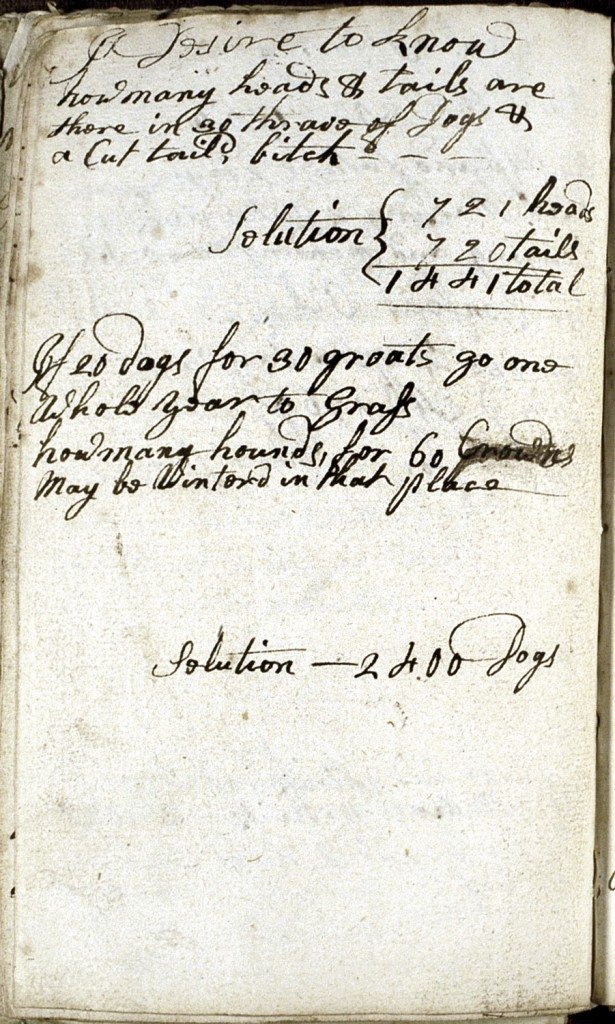 I Desire to know
how many heads & tails are
there in 30 thrave of Dogs &
a Cut tail'd bitch - - -
Solution { 721 heads
720 tails
1441 total
If 20 dogs for 30 groats go one
Whole year to Grass
how many hounds, for 60 Crowns
May be Winterd in that place
Solution — 2400 Dogs